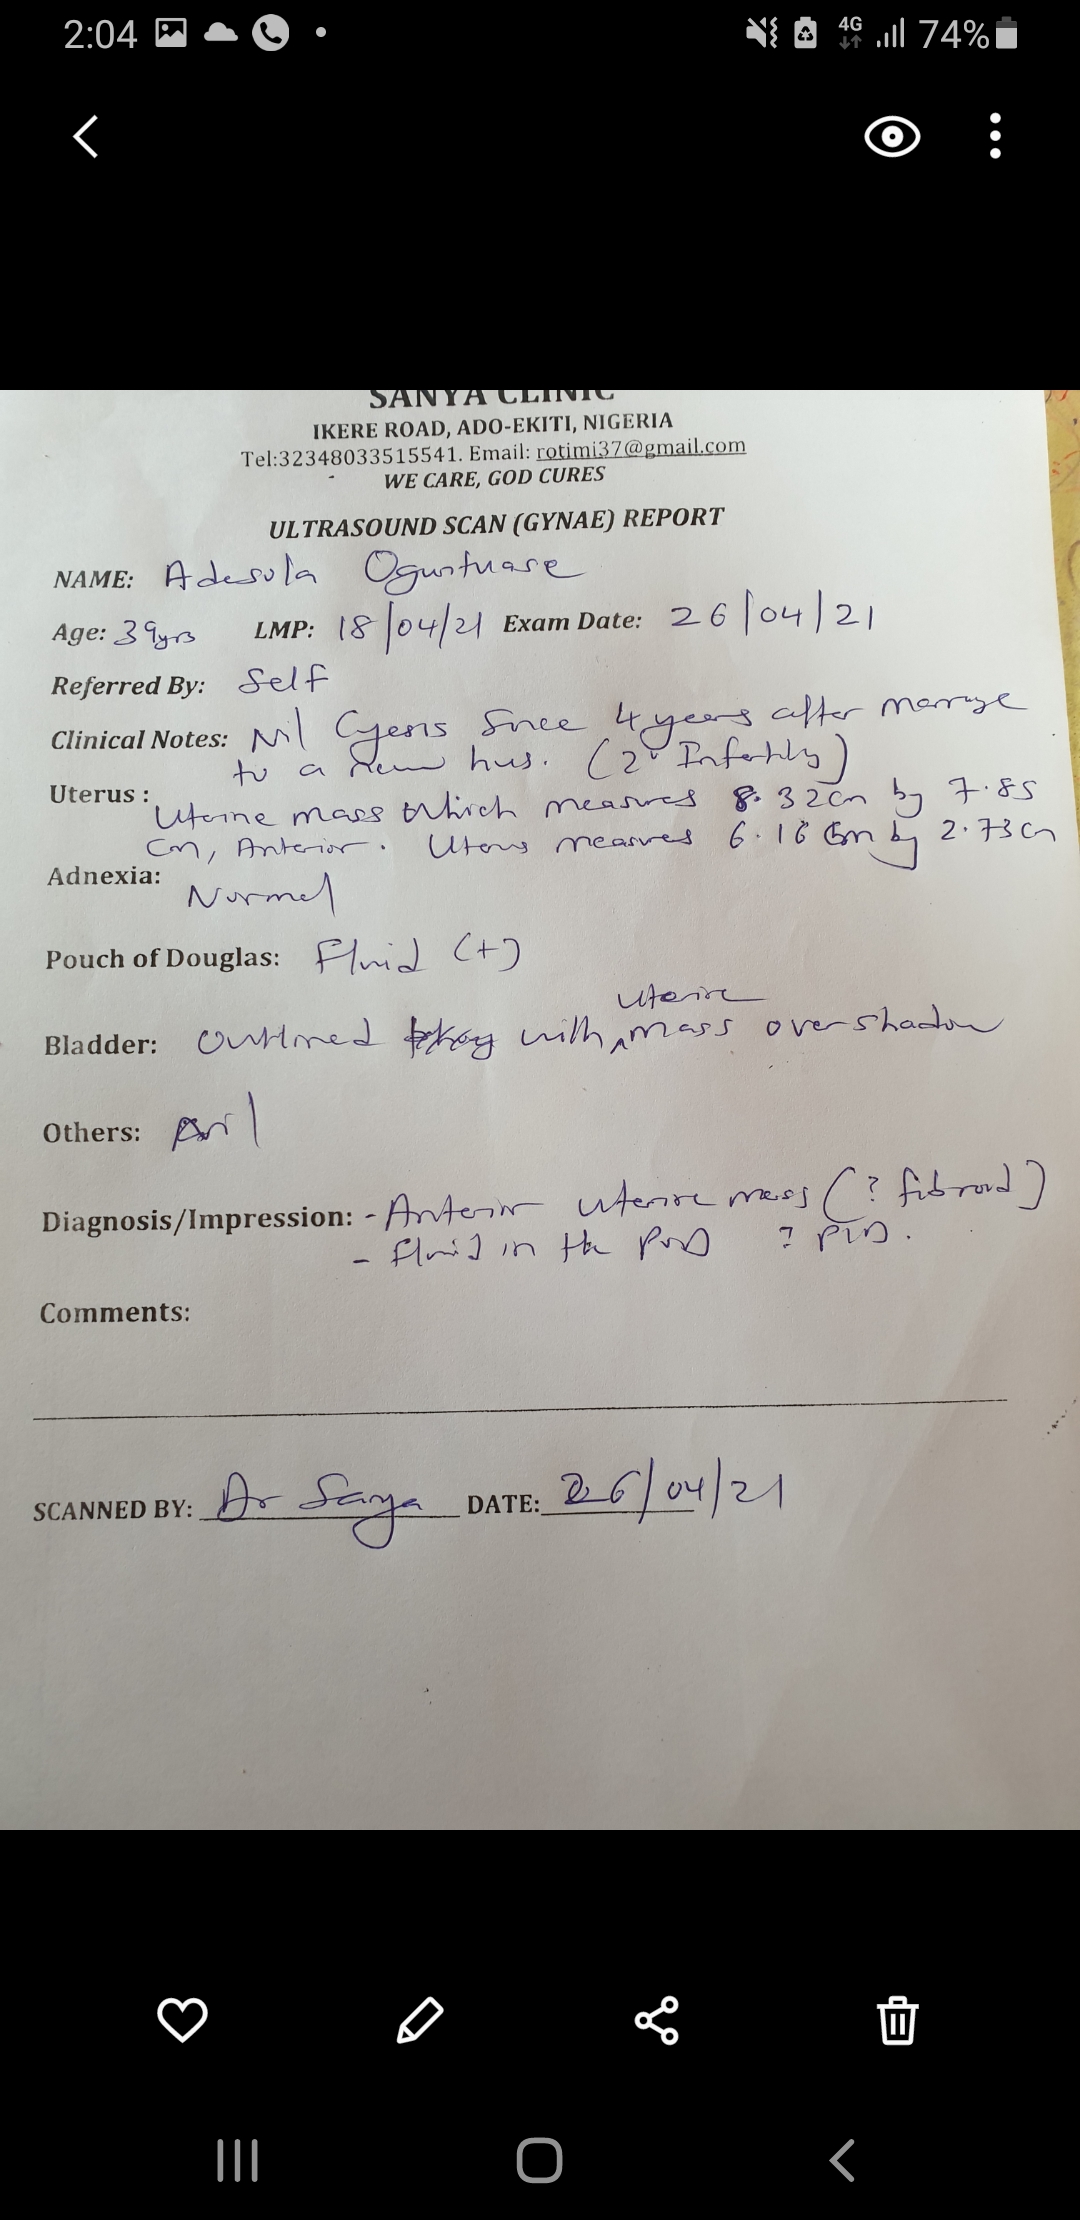 2:04
4G
74%
SANYA CLINIC
IKERE ROAD, ADO-EKITI, NIGERIA
Tel:32348033515541. Email: rotimi37@gmail.com
WE CARE, GOD CURES
ULTRASOUND SCAN (GYNAE) REPORT
NAME: Adesola
Age: 39yrs LMP: 18/04/21 Exam Date: 26/04/21
Referred By: Self
Clinical Notes: Nil Cyesis Since 4 years after marriage
to a new hus. (2° Infertility)
Uterus: Uterine mass which measures 8.32cm by 7.85
cm, Anterior. Uterus measures 6.16 cm by 2.73cm
Adnexia: Normal
Pouch of Douglas: Fluid (+)
uterine
Bladder: Outlined with mass overshadow
Others: Nil
Diagnosis/Impression: - Anterior uterine mass (? fibroid)
- fluid in the POD ? PID.
Comments:
SCANNED BY: Dr Sanya DATE: 26/04/21